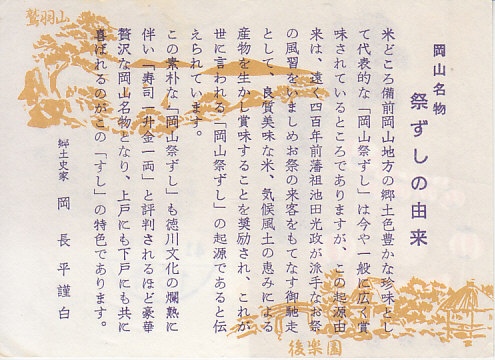 鷲羽山
岡山名物
祭ずしの由来
米どころ備前岡山地方の郷土色豊かな珍味とし
て代表的な「岡山祭ずし」は今や一般に広く賞
味されているところでありますが、この起源由
来は、遠く四百年前藩祖池田光政が派手なお祭
の風習をいましめお祭の来客をもてなす御馳走
として、良質美味な米、気候風土の恵みによる
産物を生かし賞味することを奨励され、これが
世に言われる「岡山祭ずし」の起源であると伝
えられています。
この素朴な「岡山祭ずし」も徳川文化の爛熟に
伴い「寿司一升金一両」と評判されるほど豪華
贅沢な岡山名物となり、上戸にも下戸にも共に
喜ばれるのがこの「すし」の特色であります。
郷土史家 岡長平謹白
後楽園